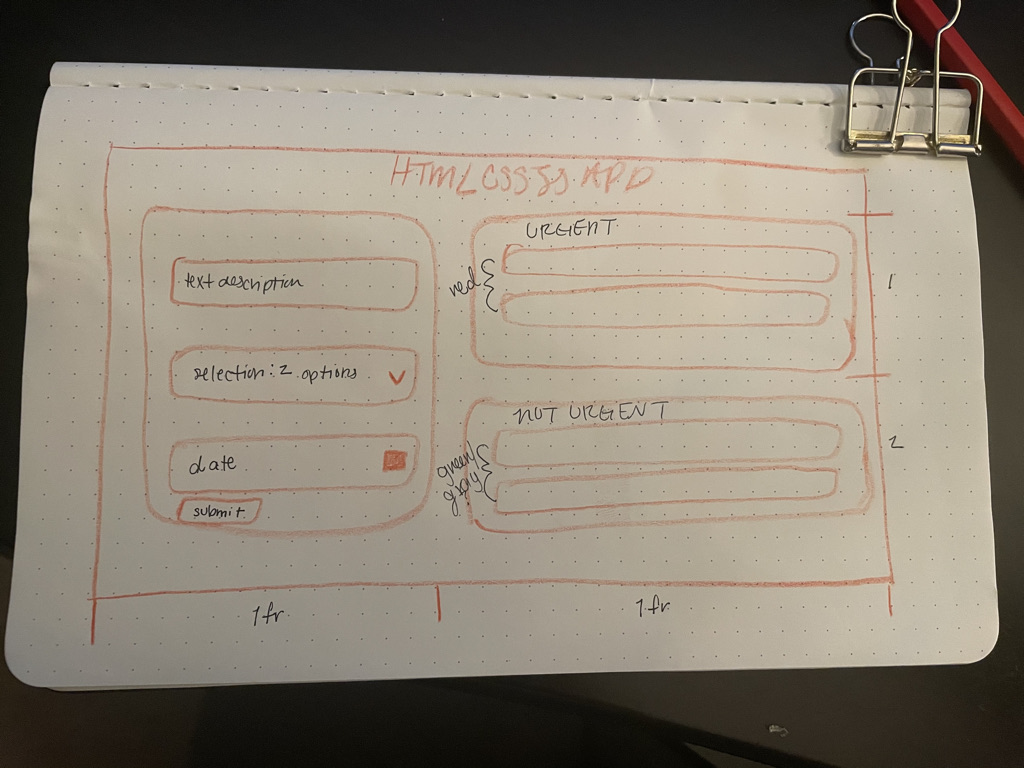 HTML CSS JS APP
text description
selection: 2 options
date
submit
URGENT
red
1
NOT URGENT
green/
gray
2
1fr
1fr